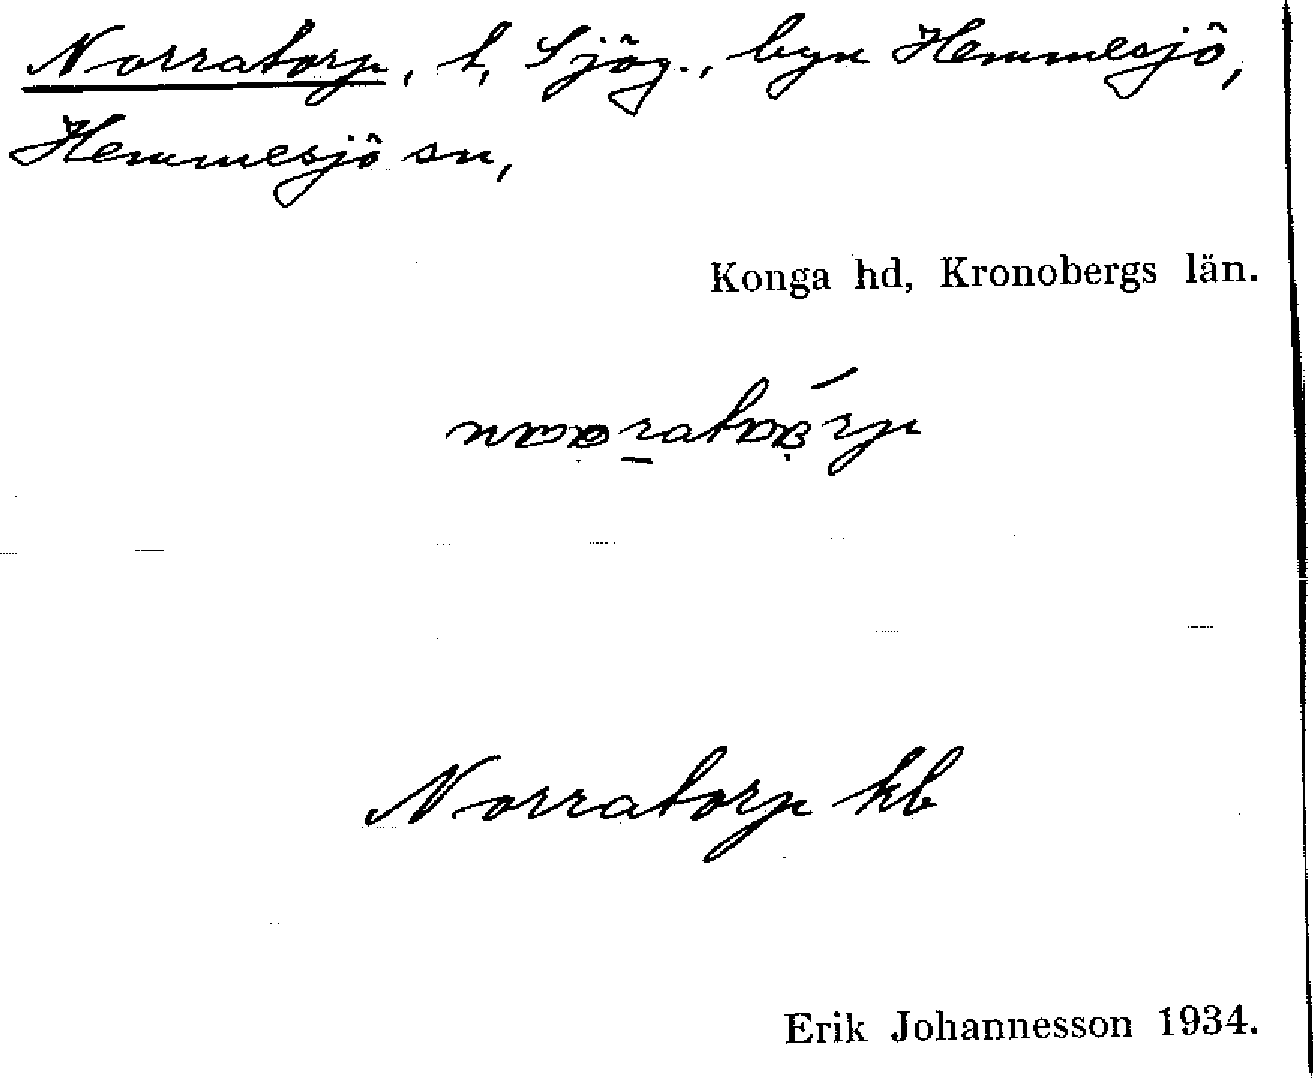 Norratorp, t, Sjög., byn Hemmesjö,
Hemmesjö sn,
Konga hd, Kronobergs län.
Norratorp kb
Erik Johannesson 1934.